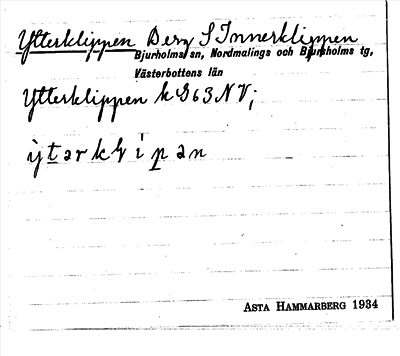 Ytterklippen Berg S Innerklippen
Bjurholms sn, Nordmalings och Bjurholms tg,
Västerbottens län
Ytterklippen k G63NV;
ASTA HAMMARBERG 1934